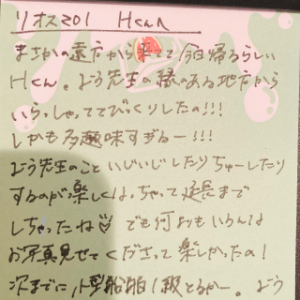 リオス201 Hくんへ
まさかの遠方から来てて今日帰るらしい
Hくん。よう先生の縁のある地方から
いらっしゃっててびっくりしたの!!!
しかも多趣味すぎるー!!!
よう先生のこといじいじしたりちゅーしたり
するのが楽しくなっちゃって延長まで
しちゃったね♡ でも何よりもいろんな
お写真見せてくださって楽しかったの!
次までに小型船舶1級とるかー。よう